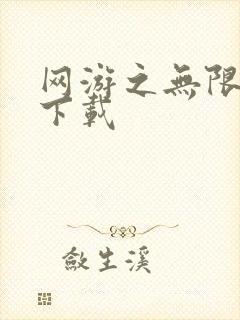 网游之無限
下載
敛生溪